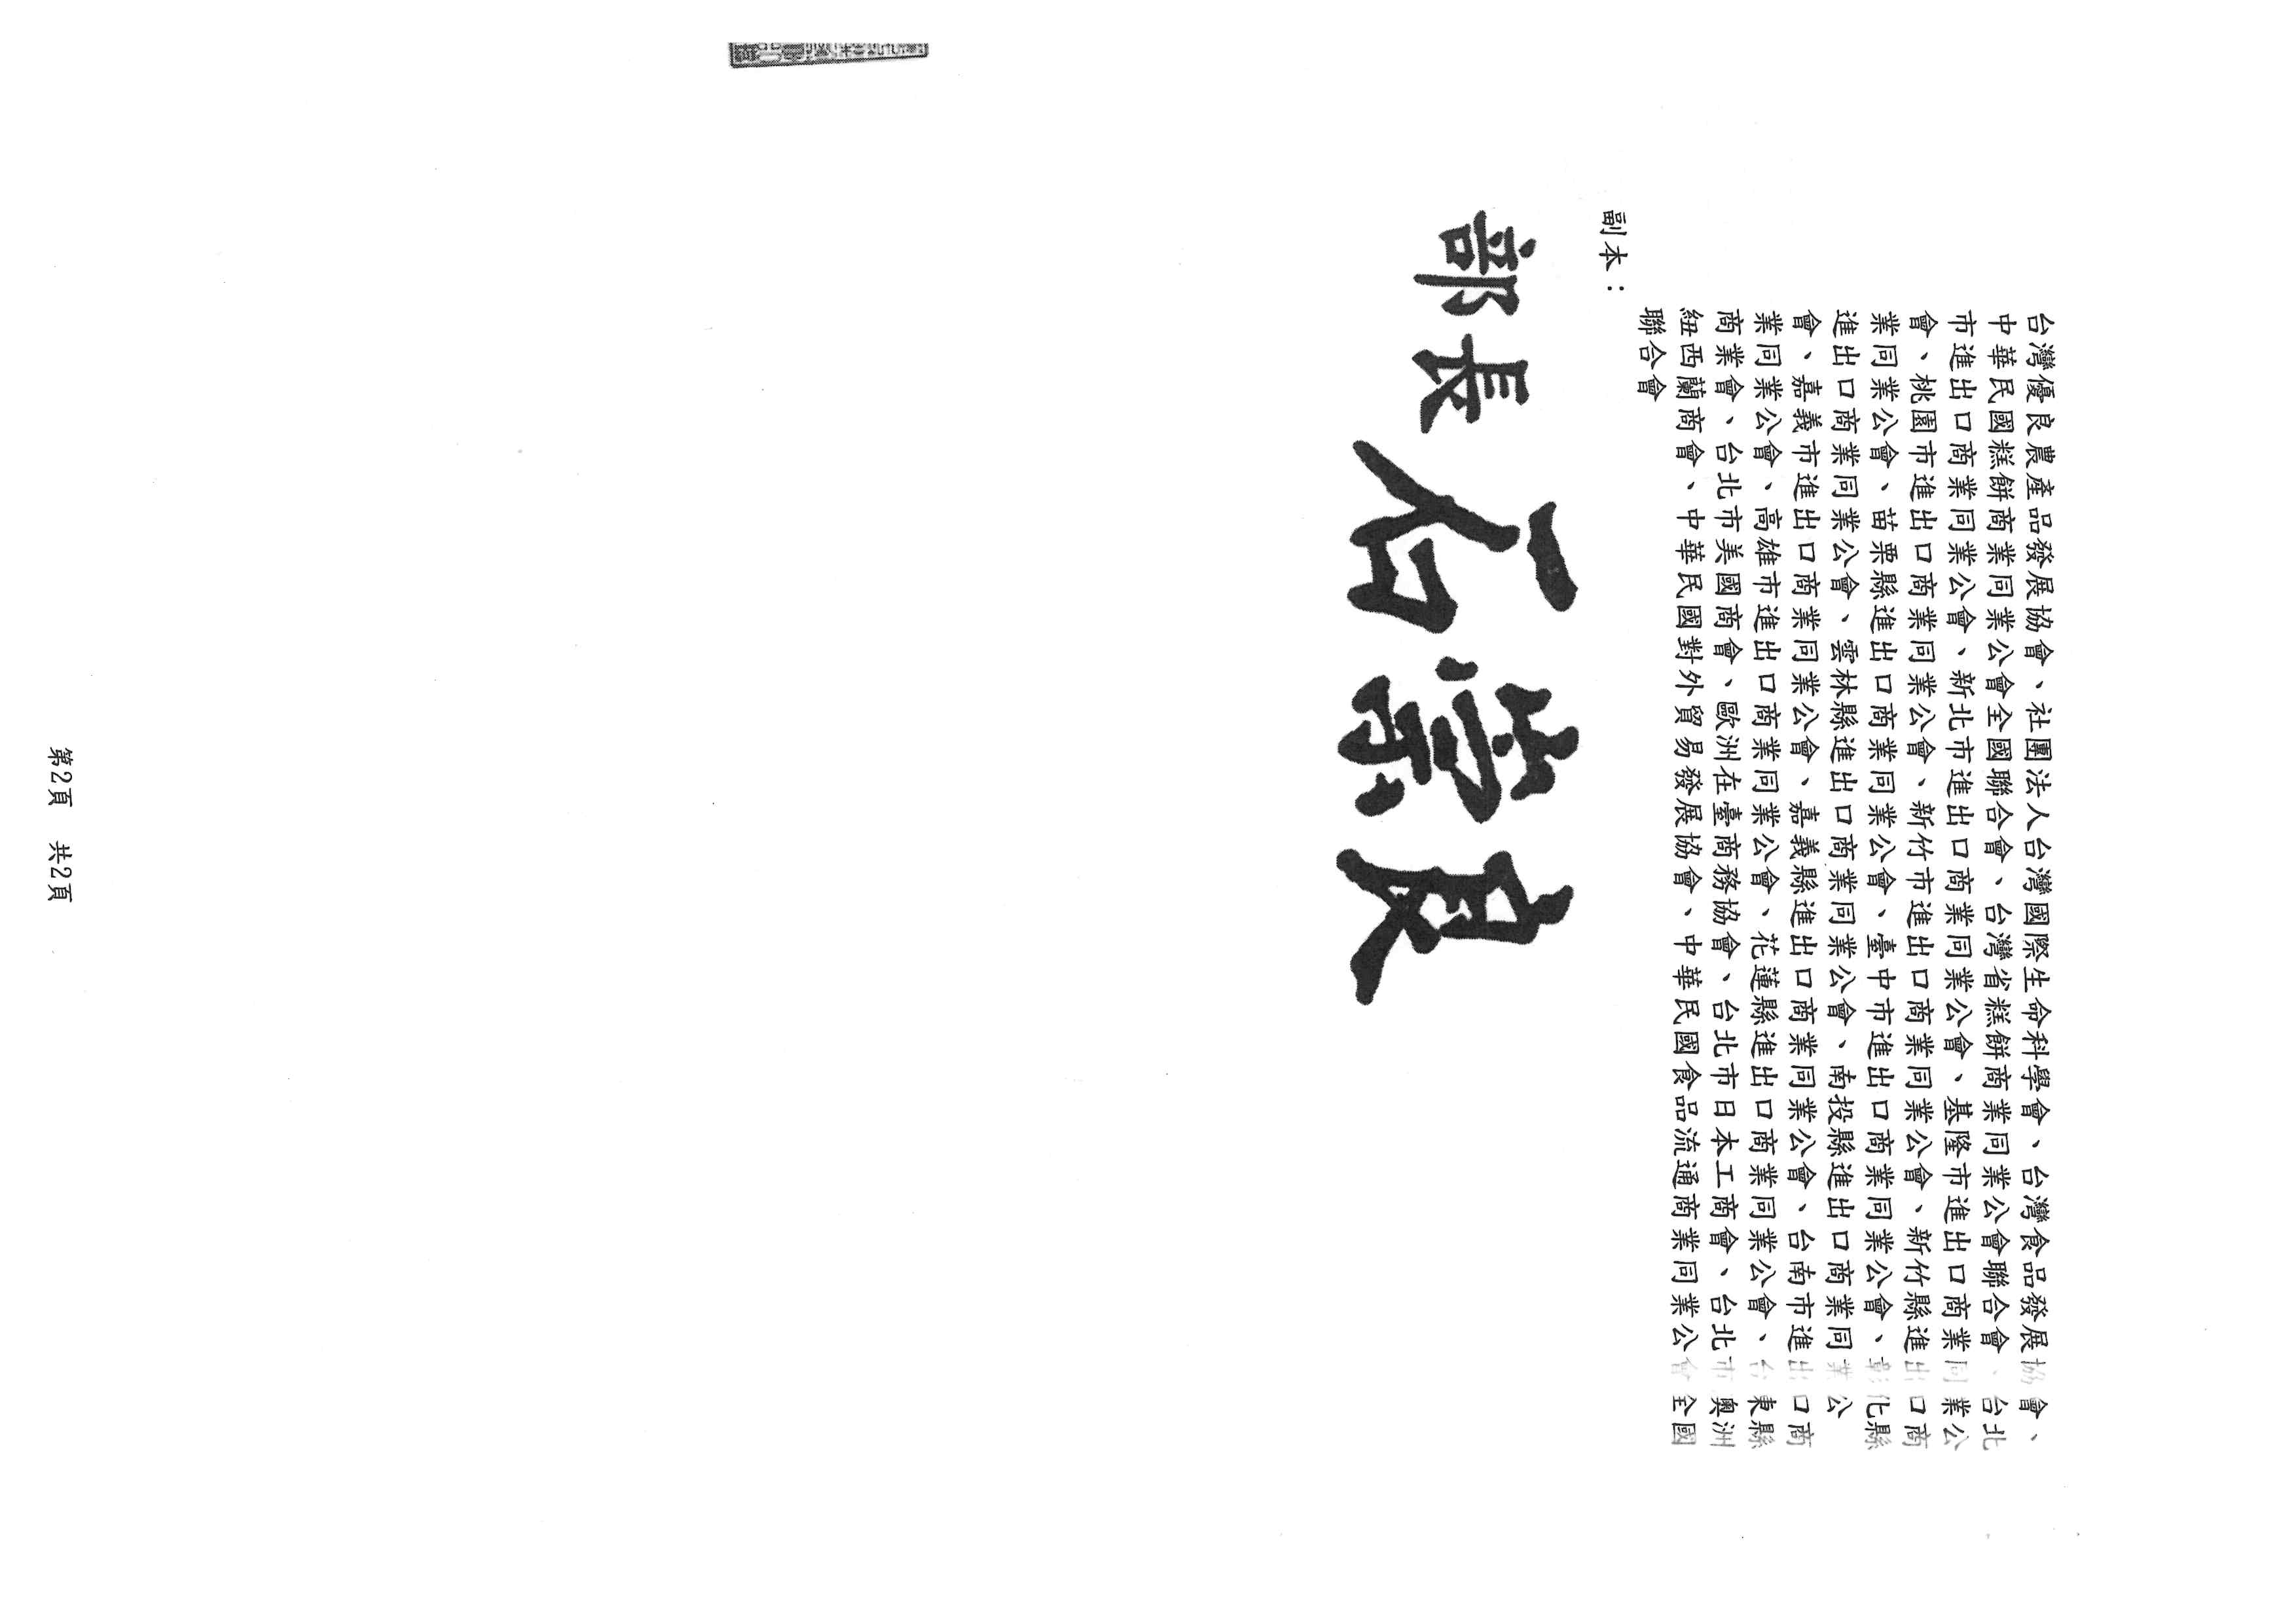 台灣優良農產品發展協會、社團法人台灣國際生命科學會、台灣食品發展協會、
中華民國糕餅商業同業公會全國聯合會、台灣省糕餅商業同業公會聯合會、台北
市進出口商業同業公會、新北市進出口商業同業公會、基隆市進出口商業同業公
會、桃園市進出口商業同業公會、新竹市進出口商業同業公會、新竹縣進出口商
業同業公會、苗栗縣進出口商業同業公會、臺中市進出口商業同業公會、彰化縣
進出口商業同業公會、雲林縣進出口商業同業公會、南投縣進出口商業同業公
會、嘉義市進出口商業同業公會、嘉義縣進出口商業同業公會、台南市進出口商
業同業公會、高雄市進出口商業同業公會、花蓮縣進出口商業同業公會、台東縣
商業會、台北市美國商會、歐洲在臺商務協會、台北市日本工商會、台北市奧洲
紐西蘭商會、中華民國對外貿易發展協會、中華民國食品流通商業同業公會全國
聯合會
副本：
部長 石崇良
第2頁 共2頁